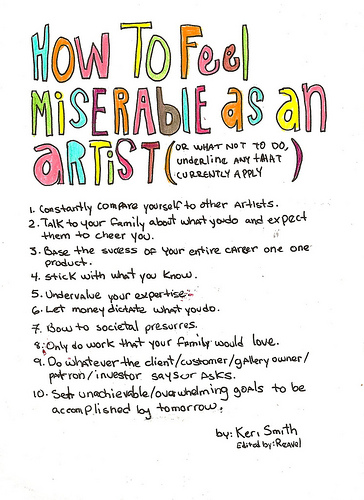 HOW TO FEEL
MISERABLE as an
ARTIST (OR WHAT NOT TO DO,
underline ANY THAT
CURRENTLY APPLY)
1. Constantly compare yourself to other artists.
2. Talk to your family about what youdo and expect
them to cheer you.
3. Base the sucess of your entire career one one
product.
4. Stick with what you know.
5. Undervalue your expertise.
6. Let money dictate what youdo.
7. Bow to societal presurres.
8. Only do work that your family would love.
9. Do whatever the client/customer/gallery owner/
patron/investor says or asks.
10. Set unachievable/overwhelming goals to be
accomplished by tomorrow.
by: Keri Smith
Edited by: Reavel